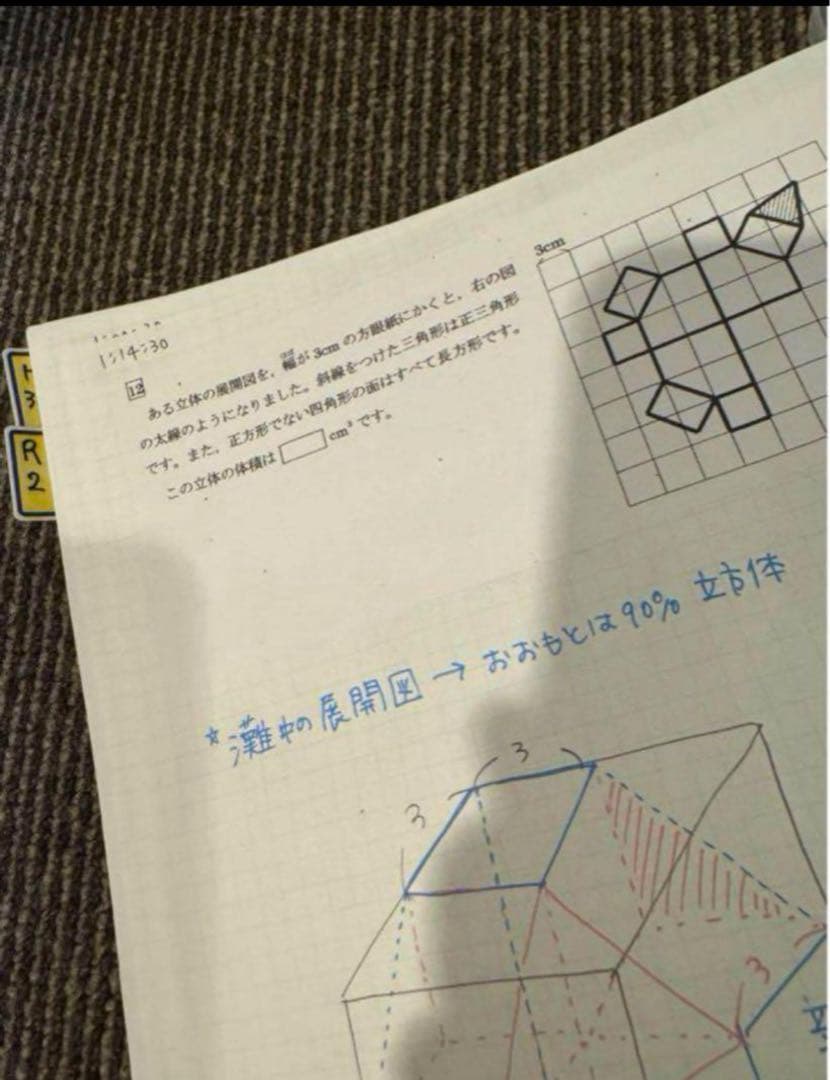 1:14:30
12
ある立体の展開図を、幅が3cmの方眼紙にかくと、右の図
の太線のようになりました。斜線をつけた三角形は正三角形
です。また、正方形でない四角形の面はすべて長方形です。
この立体の体積は cm³です。
3cm
R
2
3
☆灘中の展開図→おおもとは90% 立方体
3
3
3